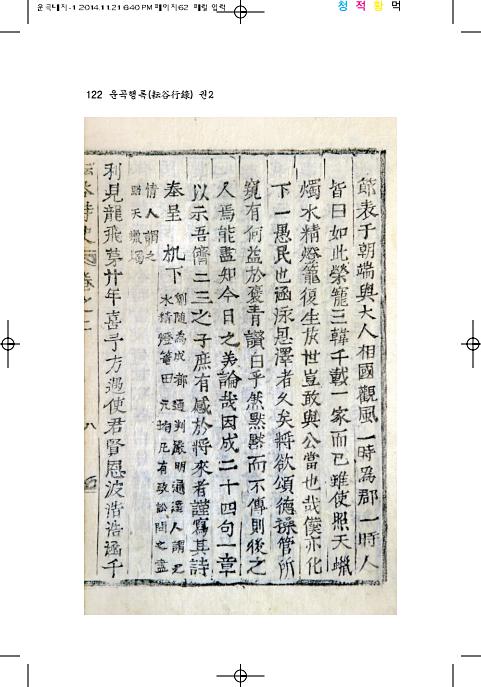 운곡내지-1 2014.11.21 6:40 PM 페이지62 매킬 입력
청 적 황 먹
122 운곡행록(耘谷行錄) 권2
節表于朝端與大人相國觀風一時爲郡一時人
皆曰如此榮寵三韓千載一家而已雖使照天蠟
燭水精燈籠復生於世豈敢與公當也哉僕亦化
下一愚民也涵泳恩澤者久矣將欲頌德操管所
窺有何益於褒靑讚白乎然黙黙而不傳則後之
人焉能盡知今日之美論哉因成二十四句一章
以示吾儕二三之子庶有感於將來者謹寫其詩
奉呈 机下
劉隨爲成都通判嚴明通達人謂之
水精燈籠田元均凡有政訟問之盡
情人謂之
照天蠟燭
利見龍飛第廿年喜予方遇使君賢恩波浩浩涵千
耘谷詩史 卷之二 八